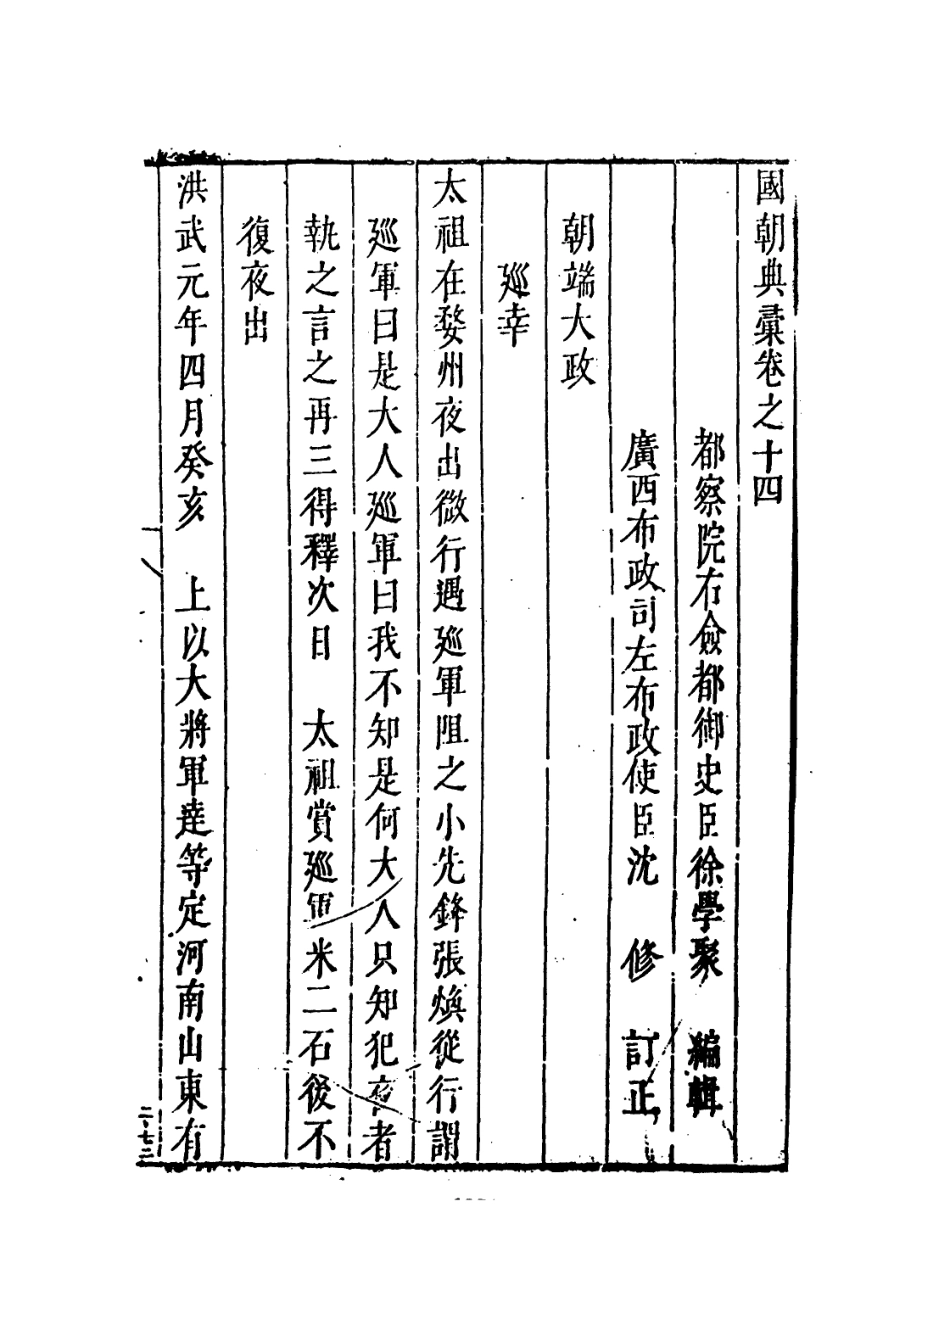 國朝典彙卷之十四
都察院右僉都御史臣徐學聚 編輯
廣西布政司左布政使臣沈 修 訂正
朝端大政
廵幸
太祖在婺州夜出微行遇廵軍阻之小先鋒張煥從行謂
廵軍曰是大人廵軍曰我不知是何大人只知犯夜者
執之言之再三得釋次日 太祖賞廵軍米二石後不
復夜出
洪武元年四月癸亥 上以大將軍達等定河南山東有
二七三